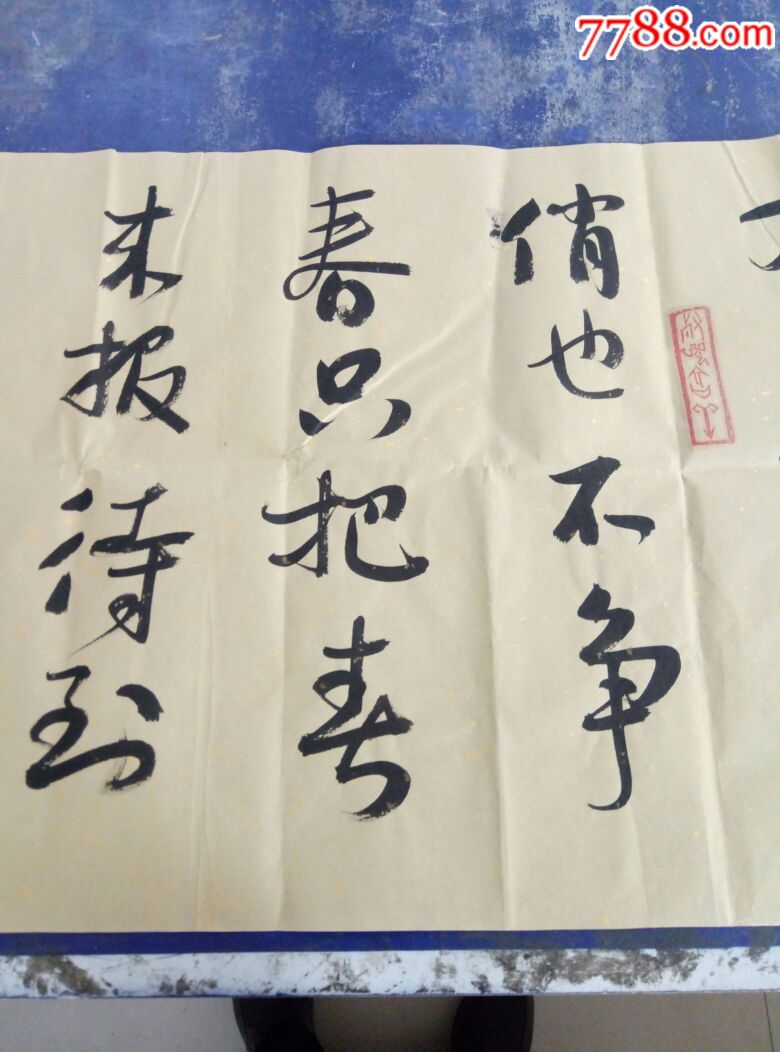 7788.com
俏也不争
春只把春
来报待到